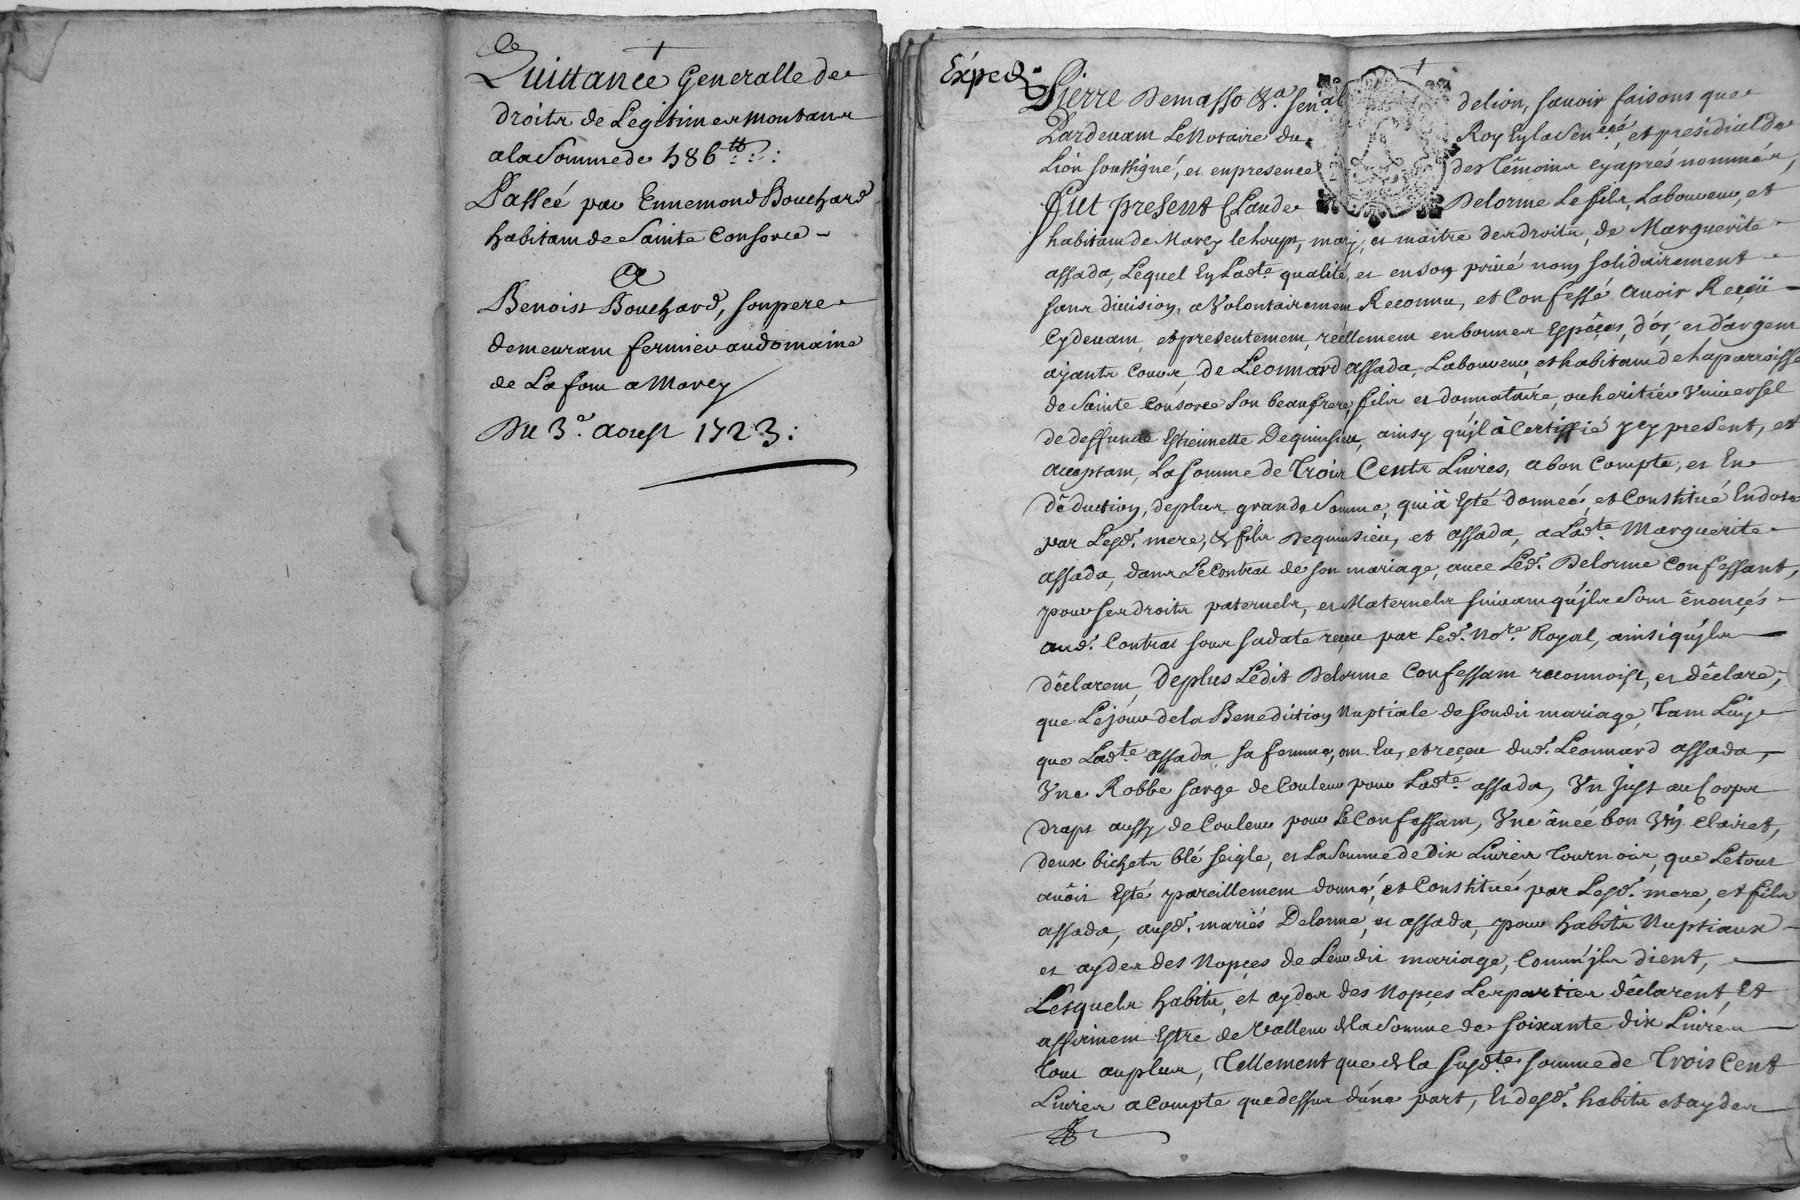 Quittance Generalle de
droits de Legitimes montans
a la Somme de 486 tt
Passeé par Ennemond Bouchard
habitant de Sainte Consorce
a
Benoist Bouchard, son pere
demeurant fermier au domaine
de Lafon a Marcy
Du 3e. aoust 1723 :
Exped
Pierre Demasso &a senal delion, savoir faisons que
Pardevant Le Notaire du Roy En la Seneceé, et présidial de
Lion soussigné, et en presence des Témoins cy aprés nommés,
fut present Claude Delorme Le fils, Laboureur, et
habitant de Marcy le loup, mary, et maitre des droits, de Marguerite
assada, Lequel En Ladte. qualité, et en son privé nom solidairement
sans division, a Volontairement Reconnu, et Confessé avoir Reçü
Cy devant, et presentement, reellement en bonnes Espêces, d'or, et d'argent
ayants Cours, de Léonnard assada, Laboureur, et habitant de la parroisse
de Sainte Consorce Son beaufrere, fils et donnataire, ou heritier Universel
de deffunte Estiennette Dequinsieu, ainsy qu'jl à Certiffié jcy present, et
acceptant, La somme de Trois Cents Livres, a bon Compte, et En
déduction, de plus grande Somme, qui à Esté donneé, et Constitué En dote
par Lesd. mere, & fils Dequinsieu, et assada, a Ladte Marguerite
assada, dans Le Contrat de son mariage, avec Led. Delorme Confessant,
pour ses droits paternels, et Maternels suivant qu'jls Sont énoncés
aud. Contrat sous sa date reçeu par Led. Nore Royal, ainsi qu'jls
déclarent, De plus Ledit Delorme Confessant reconnoist, et déclare,
que Le jour de la Benediction Nuptiale de son dit mariage, Tant Luy
que Ladte assada sa femme, ont Eu, et reçeu dud. Leonnard assada,
Une Robbe sarge de Couleur pour Ladte. assada, Un just au Corps
draps aussy de Couleur pour Le Confessant, Une ânéé bon Vin Clairet,
deux bichets blé seigle, et La Somme de dix Livres Tournois, que Le tout
avoit Esté pareillement donné, et Constitué par Lesd. mere, et fils
assada, ausd. mariés Delorme, et assada, pour habits Nuptiaux
et aydes des Nopçes de Leur dit mariage, Comm'jls dient,
Lesquels habits, et aydes des Nopçes Les parties déclarent, Et
affirment Estre de Valleur de la Somme de soixante dix Livres
Tout au plus, Tellement que de la susdte somme de Trois Cent
Livres a Compte que dessus d'une part, Et desd. habits et aydes